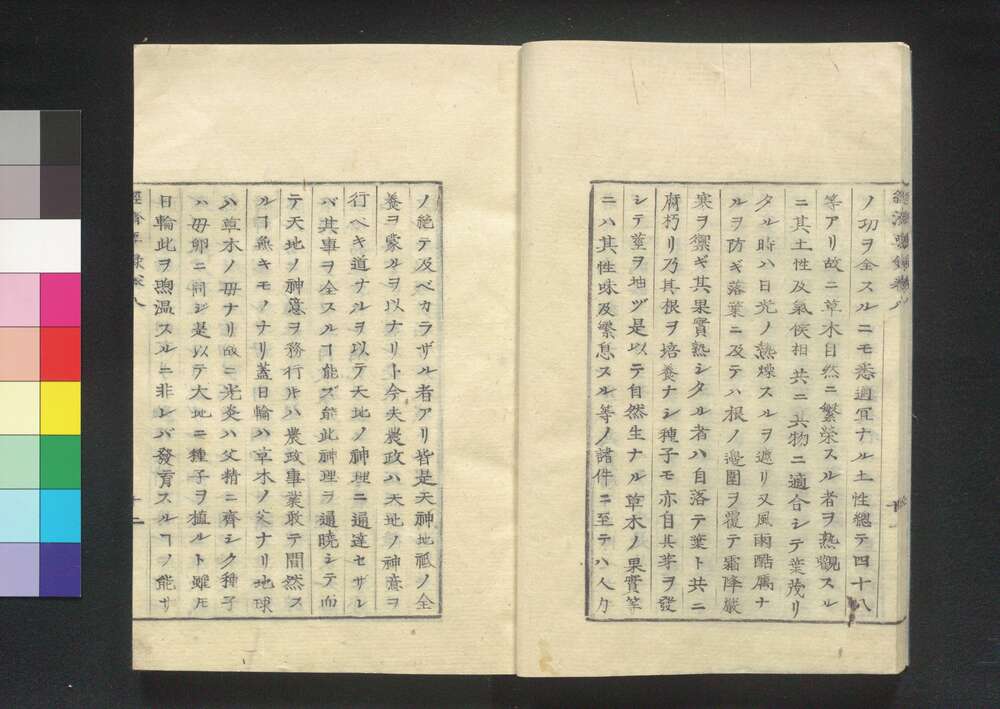 ノ功ヲ全スルニモ悉適宜ナル土性總テ四十八
等アリ故ニ草木自然ニ繁榮スル者ヲ熟觀スル
ニ其土性及氣候相共ニ其物ニ適合シテ葉茂リ
タル時ハ日光ノ熱燥スルヲ遮リ又風雨酷厲ナ
ルヲ防ギ落葉ニ及テハ根ノ邊圍ヲ覆テ霜降嚴
寒ヲ禦ギ其果實熟シタル者ハ自落テ葉ト共ニ
腐朽リ乃其根ヲ培養ナシ種子モ亦自其芽ヲ發
シテ莖ヲ抽ヅ是以テ自然生ナル草木ノ果實等
ニハ其性味及繁息スル等ノ諸件ニ至テハ人力
ノ絶テ及ベカラザル者アリ皆是天神地祗ノ全
養ヲ蒙ルヲ以ナリト今夫農政ハ天地ノ神意ヲ
行ベキ道ナルヲ以テ天地ノ神理ニ通達セザレ
バ其事ヲ全スルヿ能ズ能此神理ヲ通曉シテ而
テ天地ノ神意ヲ務行ヰハ農政事業敢テ間然ス
ルヿ無キモノナリ蓋日輪ハ草木ノ父ナリ地球
ハ草木ノ母ナリ故ニ光炎ハ父精ニ齊シク種子
ハ母卵ニ同シ是以テ大地ニ種子ヲ植ルト雖㪽
日輪此ヲ煦温スルニ非レバ發育スルヿノ能サ